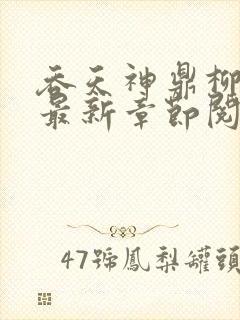 吞天神鼎柳
最新章節閱
47號鳳梨罐頭